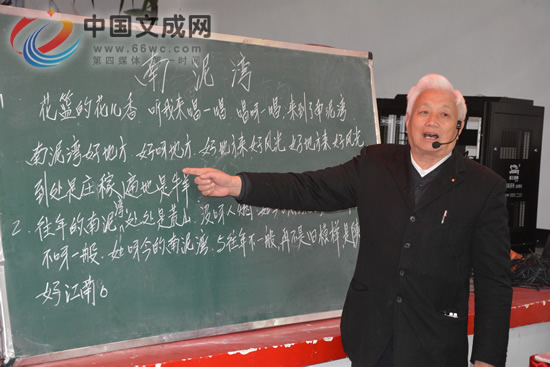 中国文成网
www.66wc.com
第四媒体 第一时间
南泥湾
花篮的花儿香 听我来唱一唱 唱呀一唱.来到了南泥湾
南泥湾好地方.好呀地方.好地方来好风光.好地方来好风光
到处是庄稼,遍地是牛羊
2. 往年的南泥湾处处是荒山 没呀人烟
不呀一般.如呀今的南泥湾.与往年不一般.再不是旧模样 是
好江南。